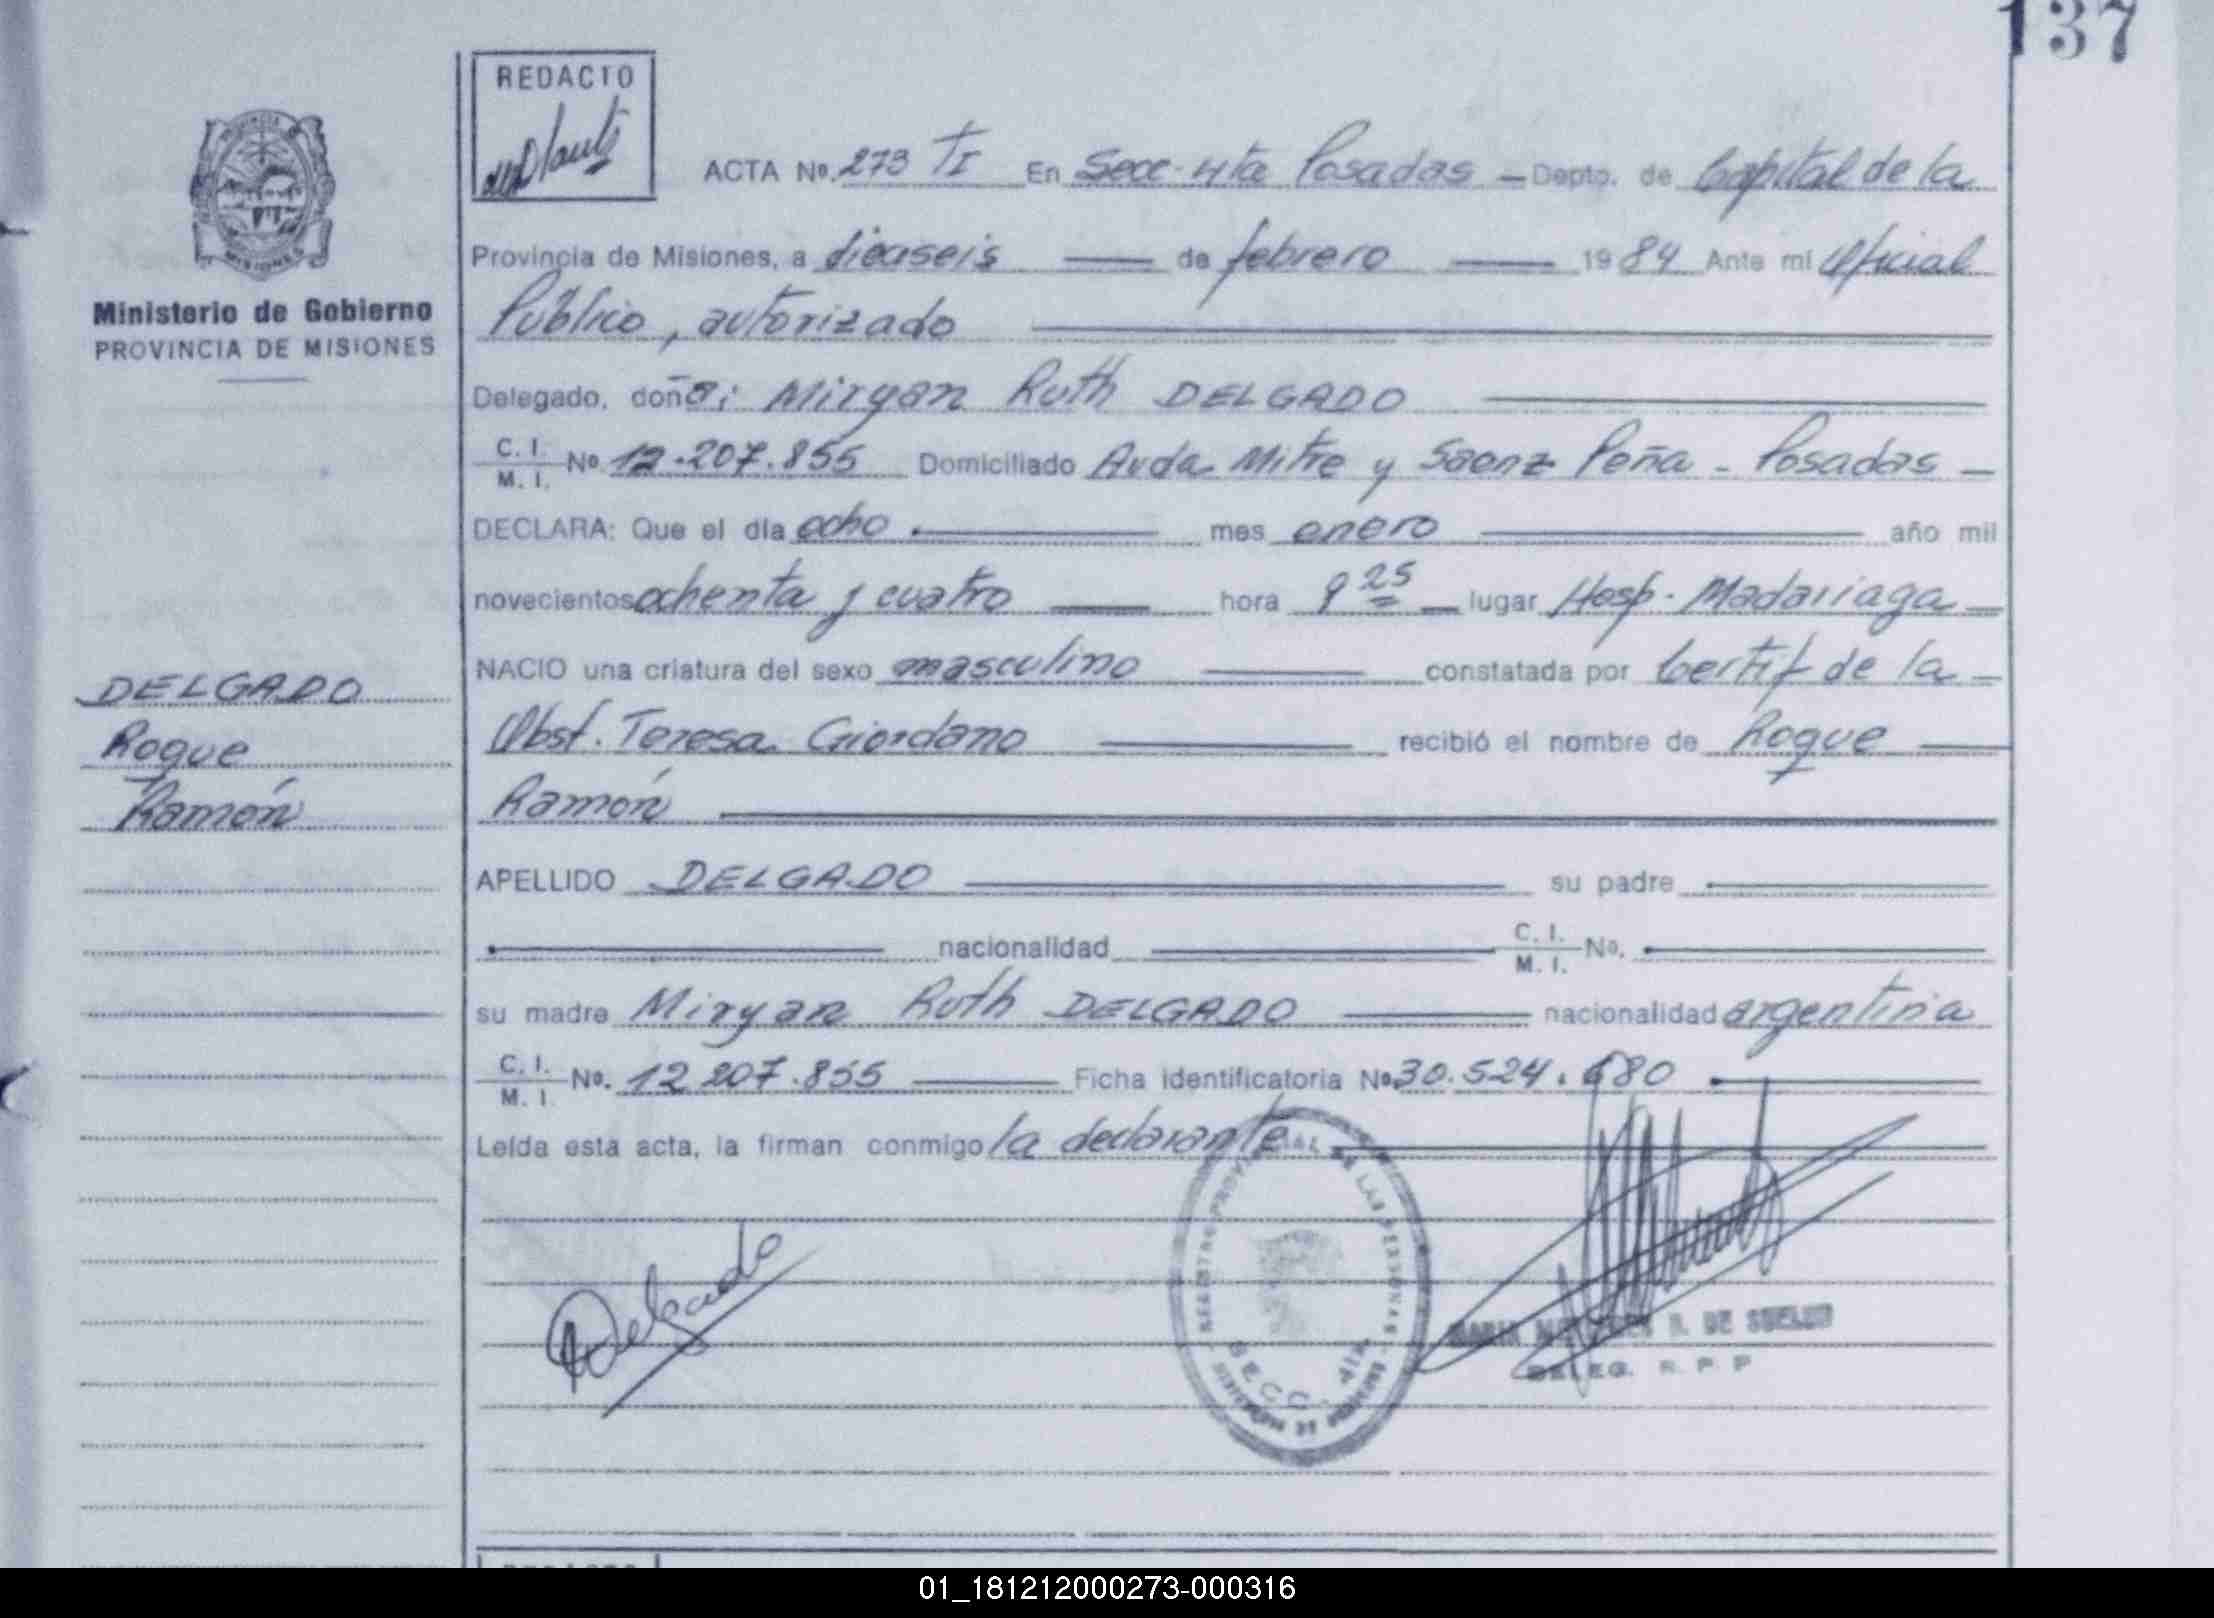 137
REDACTO
ACTA Nº. 273 TI En Secc. 4ta Posadas - Depto. de Capital de la
PROVINCIA
MISIONES
Provincia de Misiones, a dieciseis de febrero 1984 Ante mí Oficial
Ministerio de Gobierno
PROVINCIA DE MISIONES
Público, autorizado
Delegado, doña: Miryan Ruth DELGADO
C. I. / M. I. Nº 12.207.855 Domiciliado Avda. Mitre y Saenz Peña - Posadas -
DECLARA: Que el día ocho mes enero año mil
novecientos ochenta y cuatro hora 9 25 lugar Hosp. Madariaga
NACIO una criatura del sexo masculino constatada por Certif de la
DELGADO
Roque
Ramón
Obst. Teresa Giordano recibió el nombre de Roque
Ramón
APELLIDO DELGADO su padre
nacionalidad C. I. / M. I. Nº.
su madre Miryan Ruth DELGADO nacionalidad argentina
C. I. / M. I. Nº. 12.207.855 Ficha identificatoria Nº 30.524.680
Leída esta acta, la firman conmigo la declarante
Delgado
REGISTRO PROVINCIAL DE LAS PERSONAS
SECC. 4ta.
R. DE SUELDO
DELEG. R. P. P
01_181212000273-000316